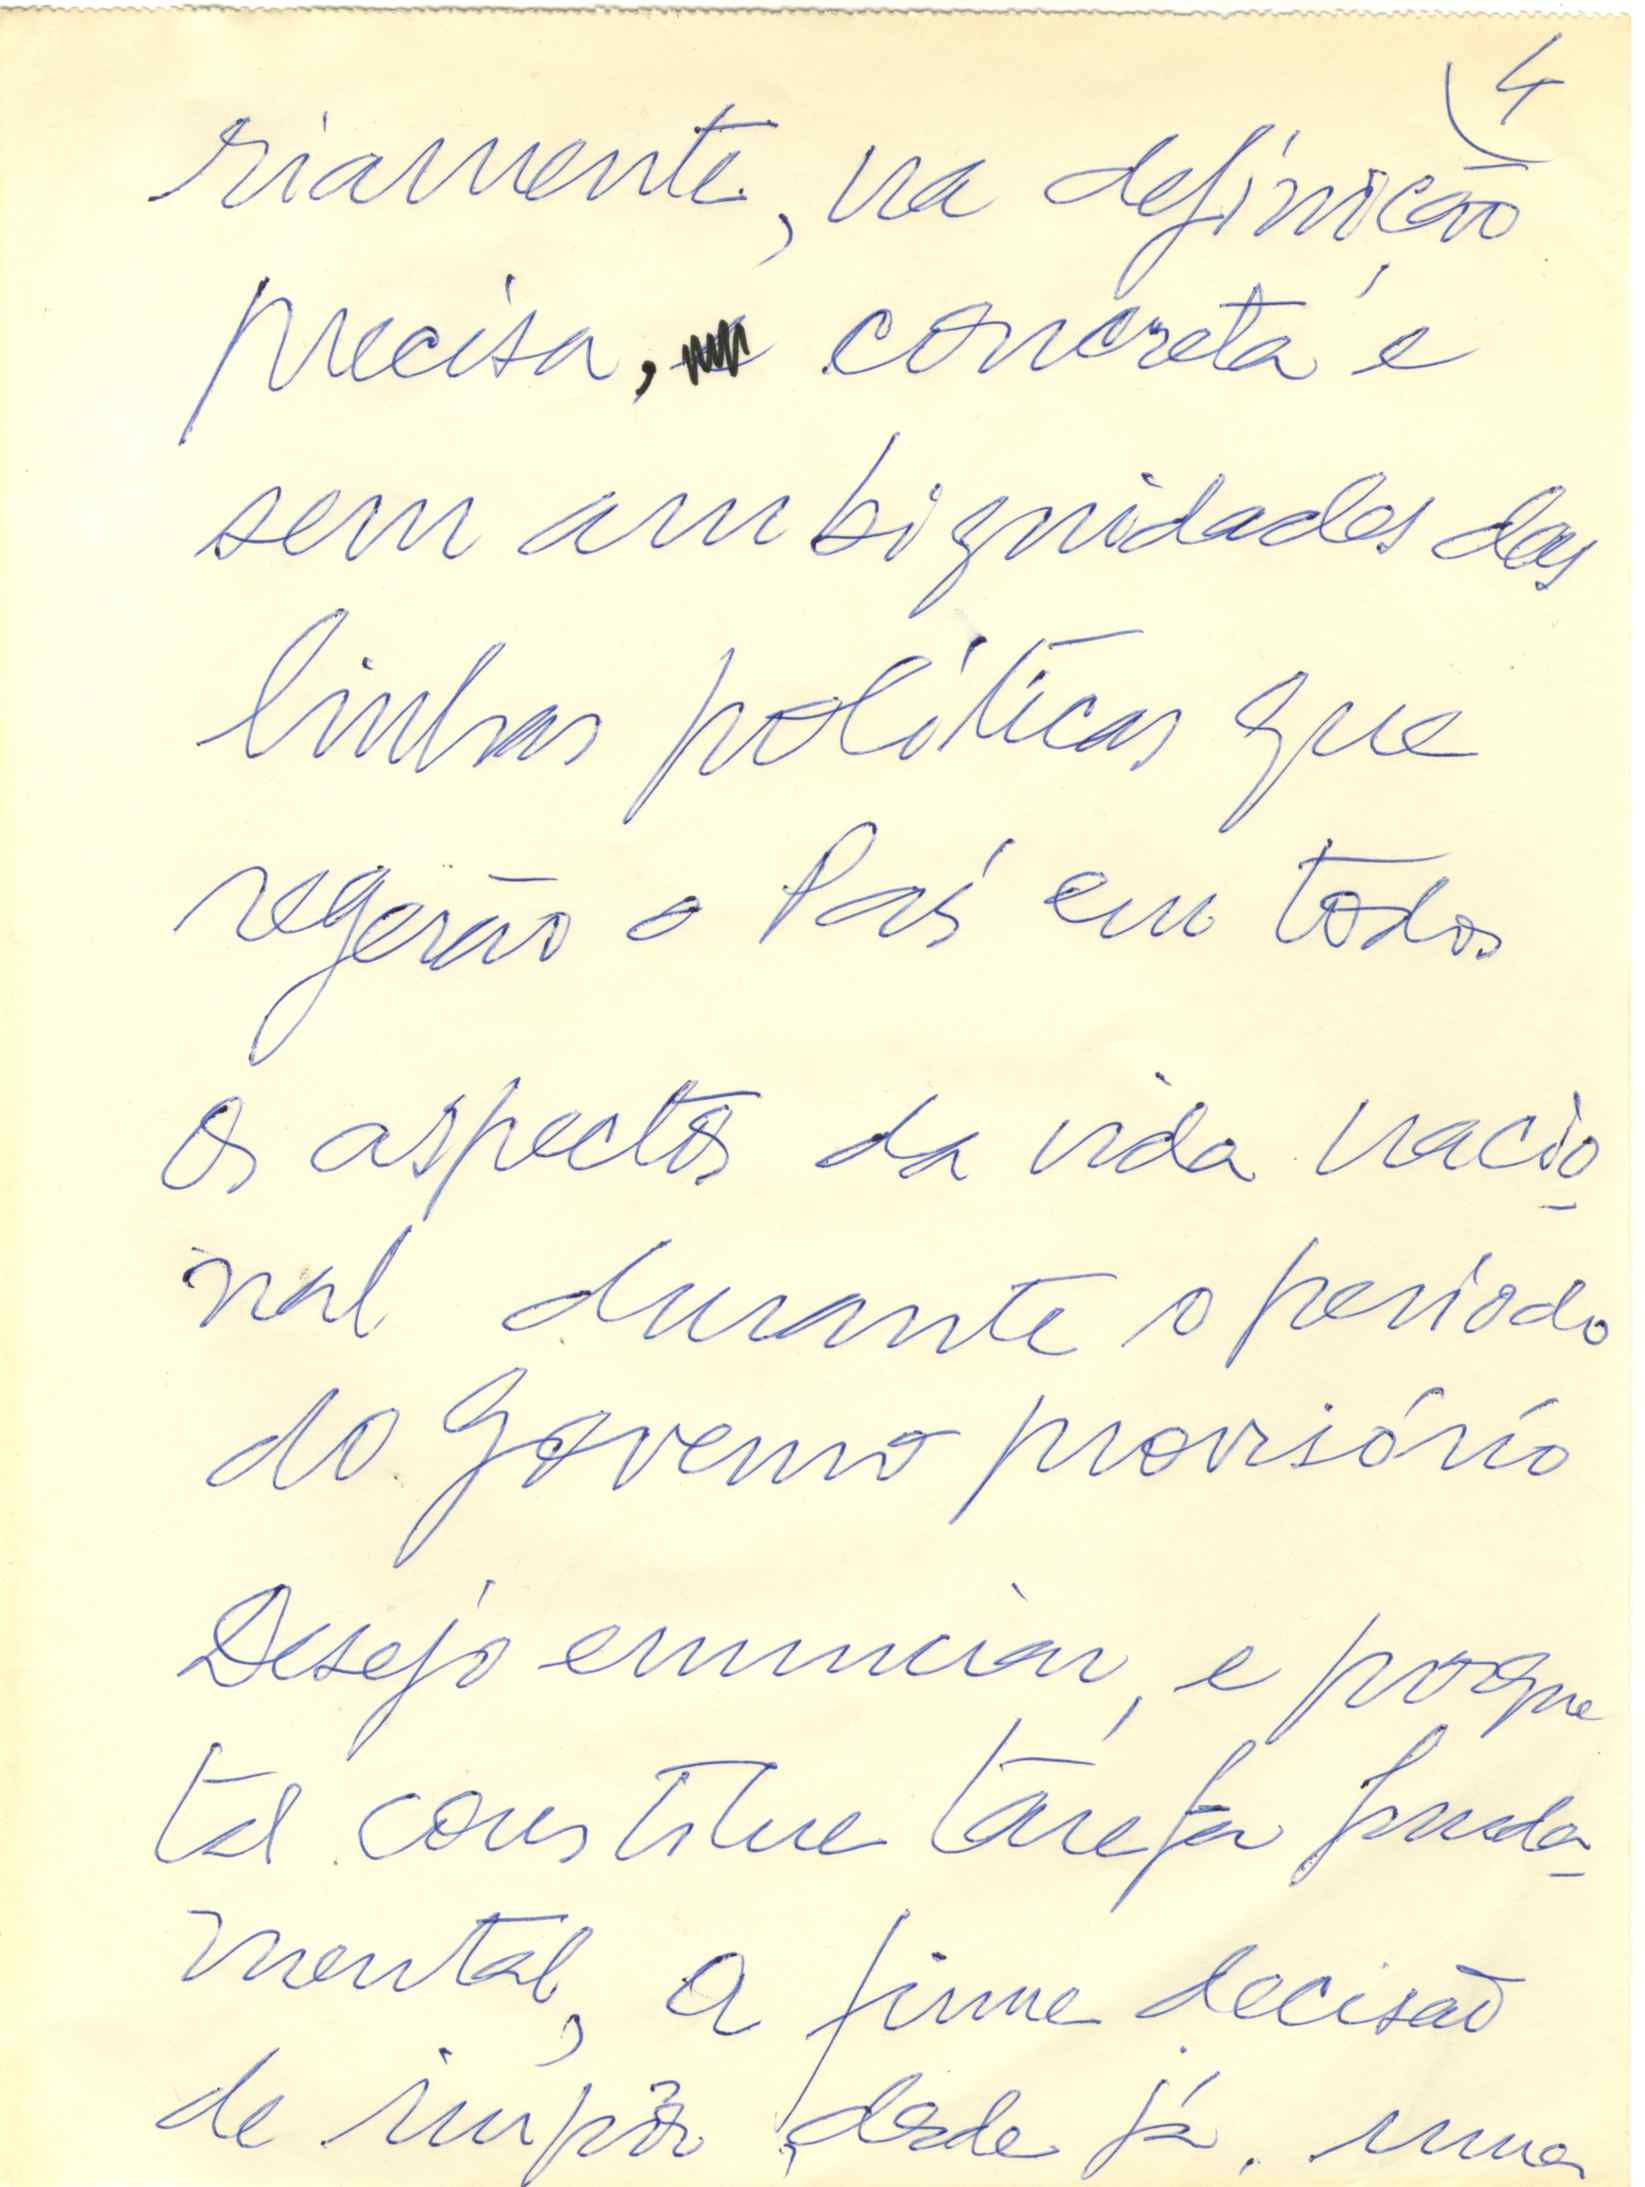 4
riamente, na definição
precisa, concreta e
sem ambiguidades das
linhas políticas que
regerão o País em todos
os aspectos da vida nacio-
nal durante o período
do Governo provisório
Desejo enunciar, e porque
tal constitue tarefa funda-
mental, a firme decisão
de impôr, desde já, uma